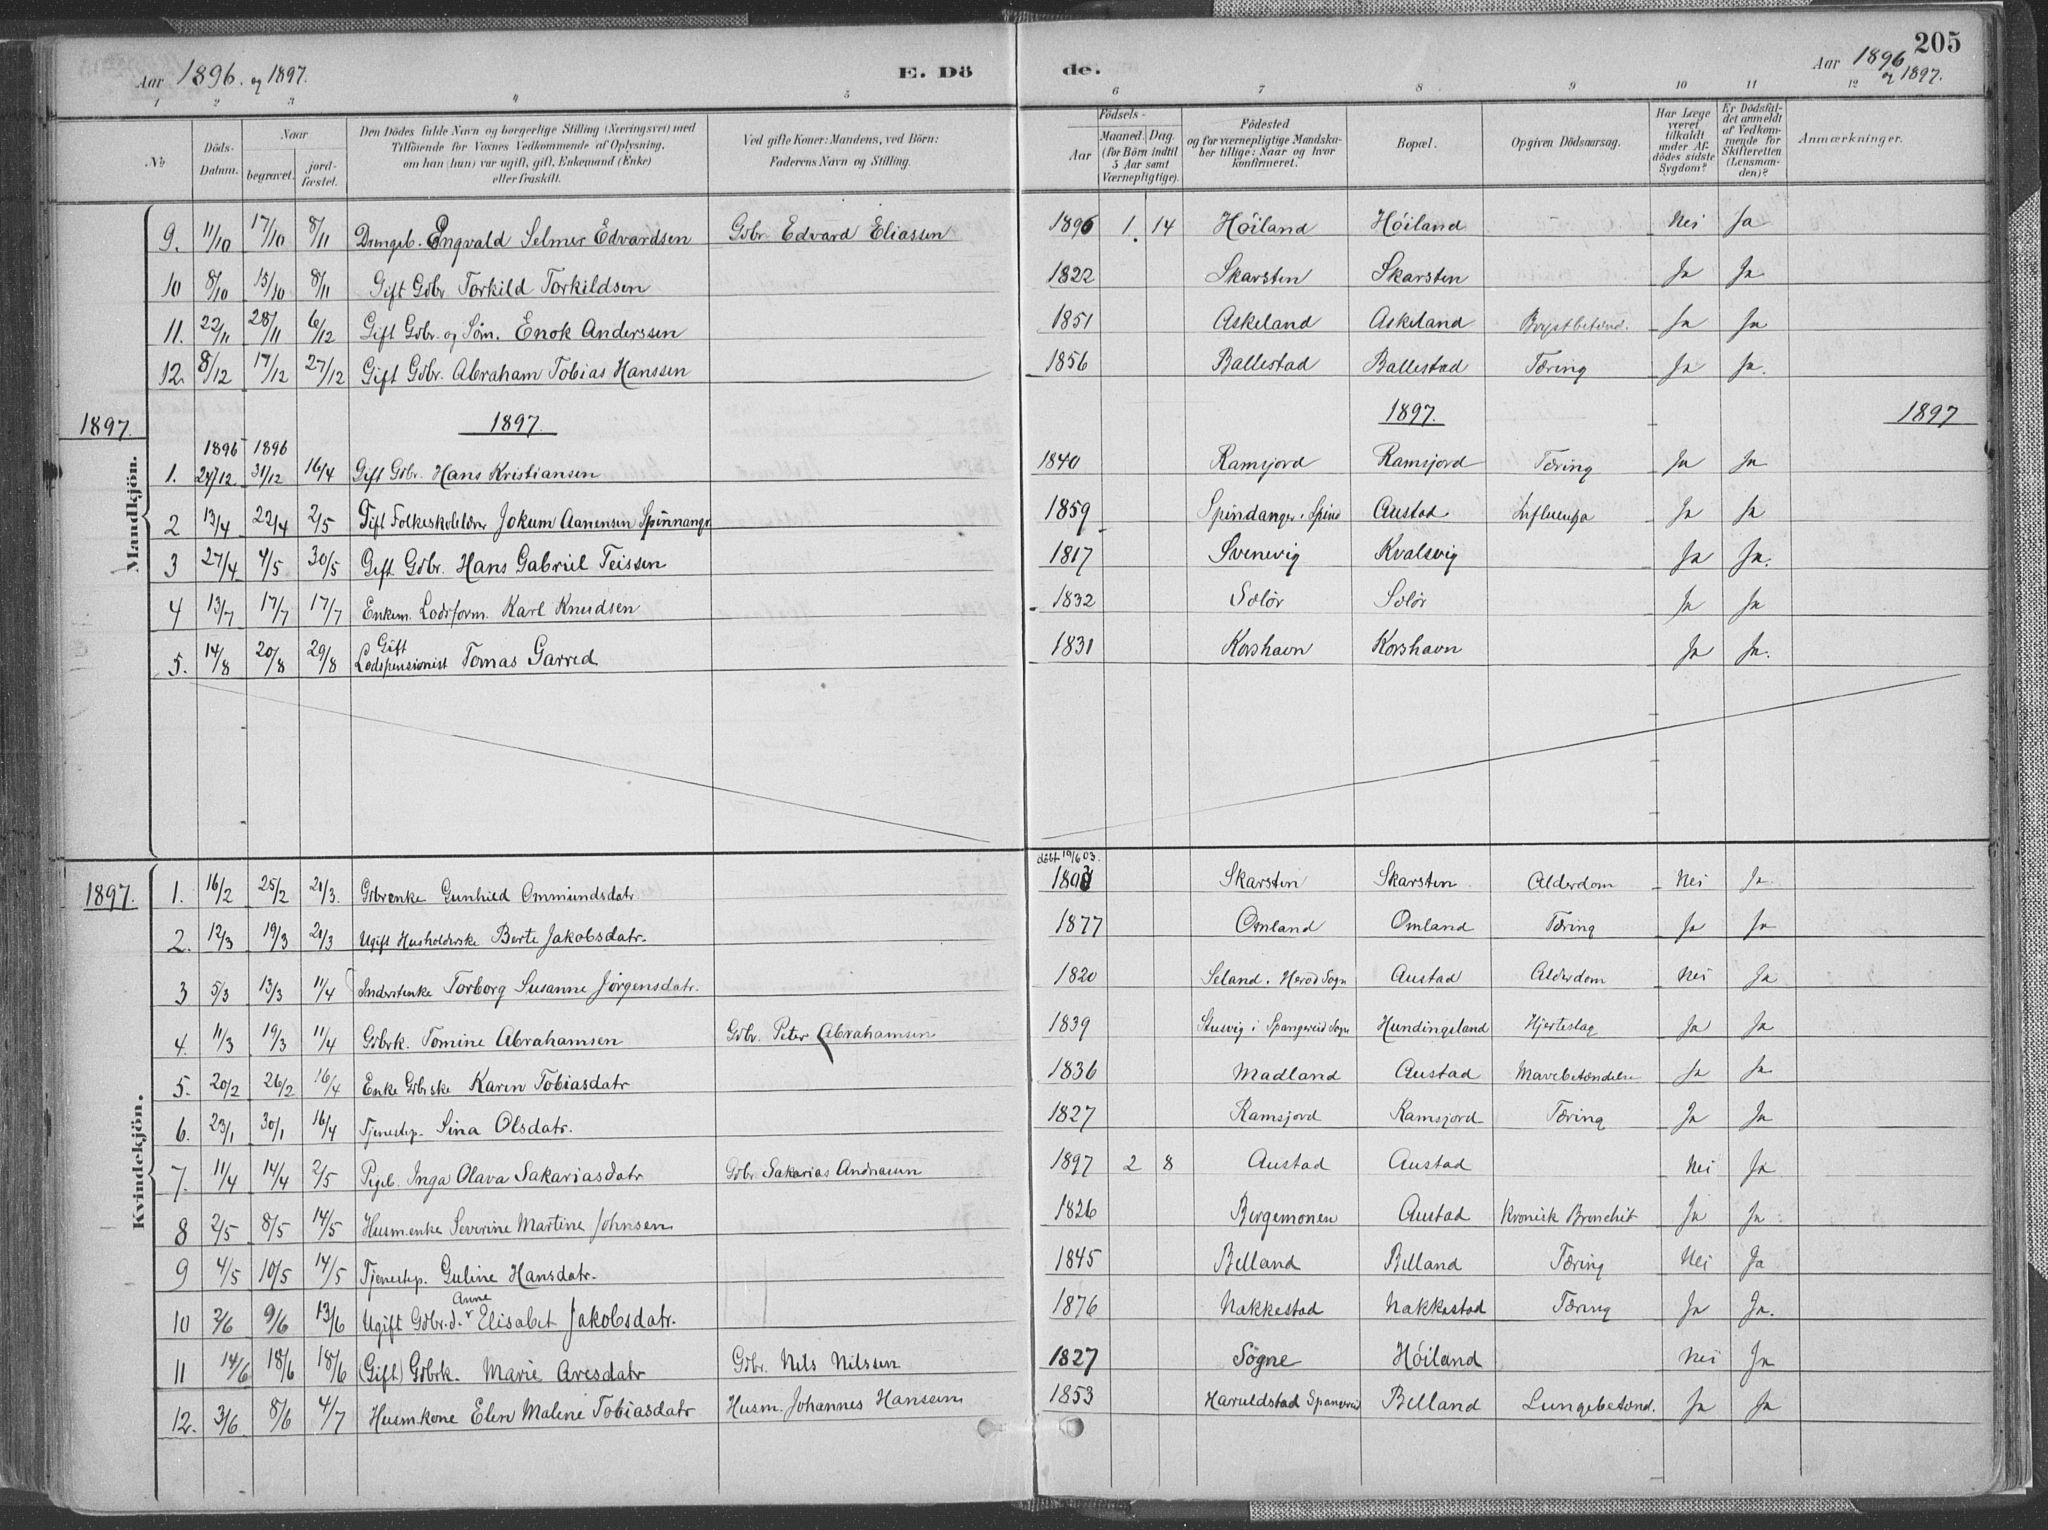 205
Aar 1896. og 1897. E. Dö de. Aar 1896 og 1897.
1 2 3 4 5 6 7 8 9 10 11 12
No Döds-Datum. Naar begravet. jord-fæstet. Den Dödes fulde Navn og borgerlige Stilling (Næringsvei) med Tilföiende for Voxnes Vedkommende af Oplysning, om han (hun) var ugift, gift, Enkemand (Enke) eller fraskilt. Ved gifte Koner: Mandens, ved Börn: Faderens Navn og Stilling. Födsels- Aar Maaned. Dag. (for Börn indtil 5 Aar samt Værnepligtige). Födested og for værnepligtige Mandska-ber tillige: Naar og hvor konfirmeret. Bopæl. Opgiven Dödsaarsag. Har Læge været tilkaldt under Af-dödes sidste Sygdom? Er Dödsfal-det anmeldt af Vedkom-mende for Skifteretten (Lensman-den)? Anmærkninger.
Mandkjön.
9. 11/10 17/10 8/11 Drengeb. Engvald Selmer Edvardsen Gbr. Edvard Eliassen 1896 1. 14 Høiland Høiland Nei Ja
10 8/10 15/10 8/11 Gift Gbr Torkild Torkildsen 1822 Skarsten Skarsten Ja Ja
11. 22/11 28/11 6/12 Gift Gbr. og Søm. Enok Anderssen 1851 Askeland Askeland Brystbetænd. Ja Ja
12. 8/12 17/12 27/12 Gift Gbr. Abraham Tobias Hanssen 1856 Ballestad Ballestad Tæring Ja Ja.
1897. 1897. 1897. 1897
1896 1896
1. 24/12 31/12 16/4 Gift Gbr. Hans Kristiansen 1840 Ramsjord Ramsjord Tæring Ja Ja
2 13/4 22/4 2/5 Gift Folkeskolelærer Jokum Aanensen Spinnangr 1859 Spindanger i Spind Austad Influenza Ja Ja
3 27/4 4/5 30/5 Gift Gbr. Hans Gabriel Teissen 1817 Svenevig Kvalsvig Ja Ja.
4 13/7 17/7 17/7 Enkem. Lodsform. Karl Knudsen 1832 Selør Selør Ja Ja
5. 14/8 20/8 29/8 Gift Lodspensionist Tomas Garred 1831 Korshavn Korshavn Ja Ja.
1897. Kvindekjön.
døbt 19/6 03.
1. 16/2 25/2 21/3. Gbrenke Gunhild Ommundsdatr 1803 Skarsten Skarsten. Alderdom Nei Ja.
2. 12/3 19/3 21/3 Ugift Husholderske Berte Jakobsdatr. 1877 Omland Omland Tæring Ja Ja
3 5/3 13/3 11/4 Inderstenke Torborg Susanne Jørgensdatr. 1820 Seland. Herod Sogn Austad Alderdom Nei Ja
4. 11/3 19/3 11/4 Gbrk. Tomine Abrahamsen Gbr. Peter Abrahamsen 1839 Stusvig i Spangereid Sogn Hundingsland Hjerteslag Ja Ja
5. 20/2 26/2 16/4 Enke Gbrske Karen Tobiasdatr 1836 Madland Austad Mavebetændelse Ja Ja
6. 23/1 30/1 16/4 Tjenestep. Sina Olsdatr. 1827 Ramsjord Ramsjord Tæring Ja Ja
7. 11/4 14/4 2/5 Pigeb. Inga Olava Sakariasdatr Gbr. Sakarias Andreasen 1897 2 8 Austad Austad Nei Ja
8 2/5 8/5 14/5 Husm.enke Severine Martine Johnsen 1826 Bergemonen Austad Kronisk Bronchit Ja Ja
9 4/5 10/5 14/5 Tjenestep. Guline Hansdatr. 1845 Belland Belland Tæring Nei Ja
10 2/6 9/6 13/6 Ugift Gbr.d. Anne Elisabet Jakobsdatr. 1876 Nakkestad Nakkestad Tæring Ja Ja.
11 14/6 18/6 18/6 (Gift) Gbrk. Marie Aresdatr Gbr. Nils Nilssen 1827 Søgne Høiland Nei Ja
12. 3/6 8/6 4/7 Husm.kone Elen Malene Tobiasdatr Husm. Johannes Hanssen 1853 Haruldstad Spangereid Belland Lungebetænd. Ja Ja